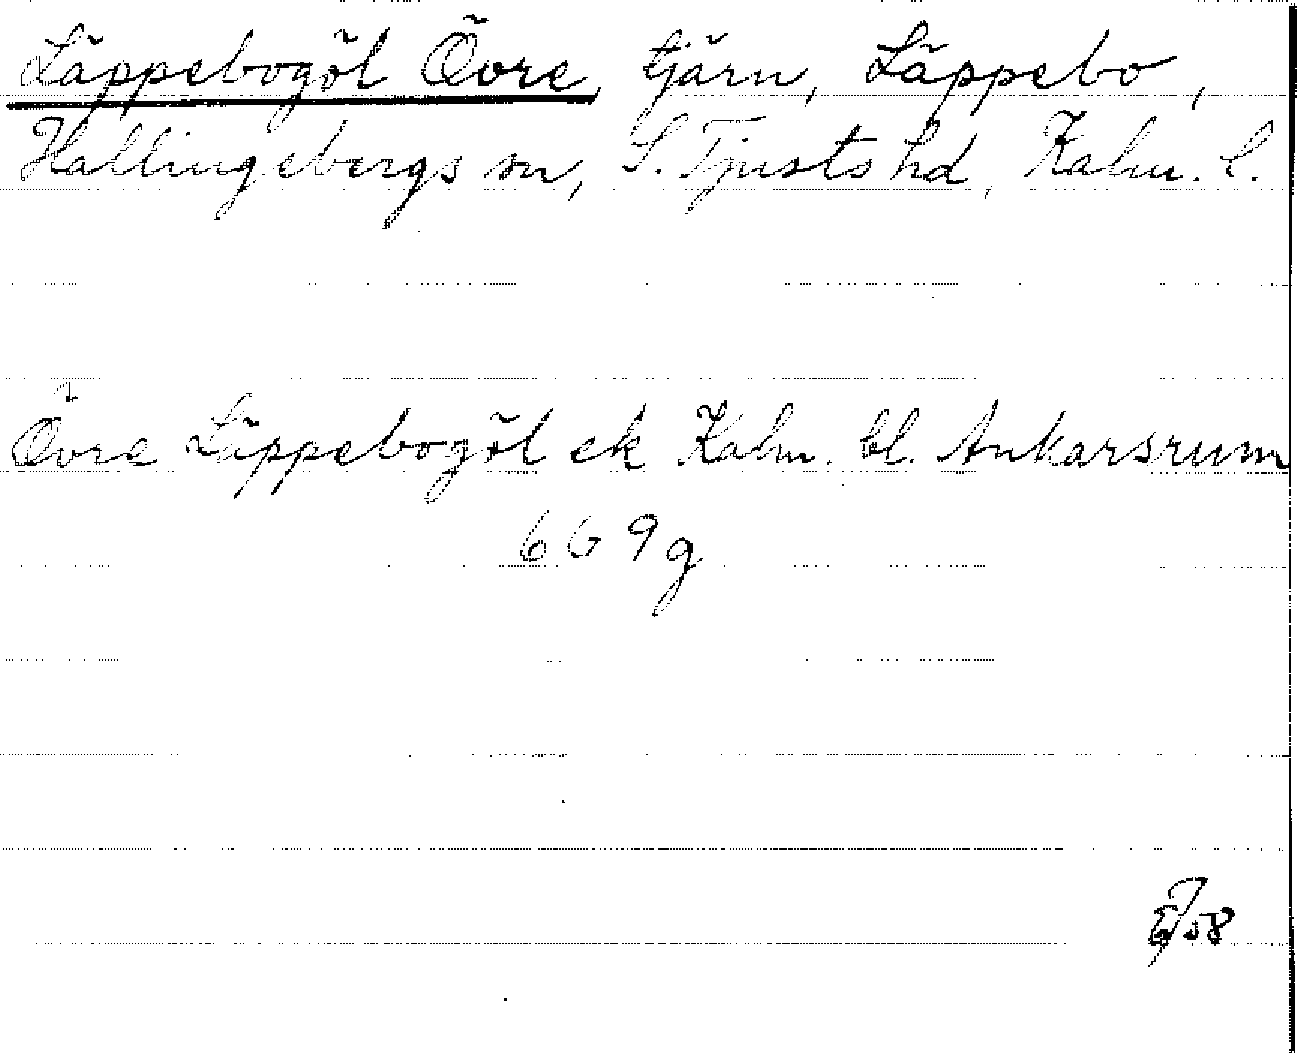 Läppebogöl Övre, tjärn, Läppebo,
Hallingebergs sn, S. Tjusts hd, Kalm. l.
Övre Läppebogöl ek Kalm. bl. Ankarsrum
669g